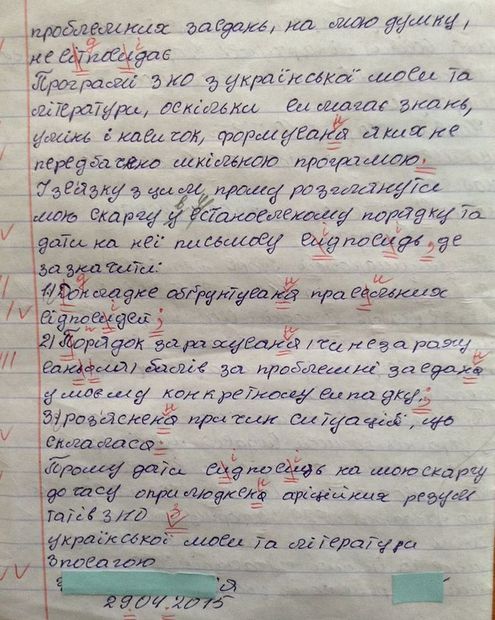 проблемних завдань, на мою думку,
не вітповидає
Програмі ЗНО з української мови та
літератури, оскільки вимагає знань,
умінь і навичок, формуваня яких не
передбачено шкільною програмою.
І звязку з цим, прошу розглянути
мою скаргу у встановлекому порядку та
дати на неї письмову видповидь, де
зазначити:
1) Докладне обґрунтуваня правельних
відповидей;
2) Порядок зарахуваня (чи незараху
вання) балів за проблемні завданя
у моєму конкретному випадку;
3) розяснення причин ситуації, що
склалася.
Прошу дати видповидь на мою скаргу
до часу оприлюдненя офіційних резуль
татів ЗНО з
української мови та літератури
З повагою
ія
29.04.2015